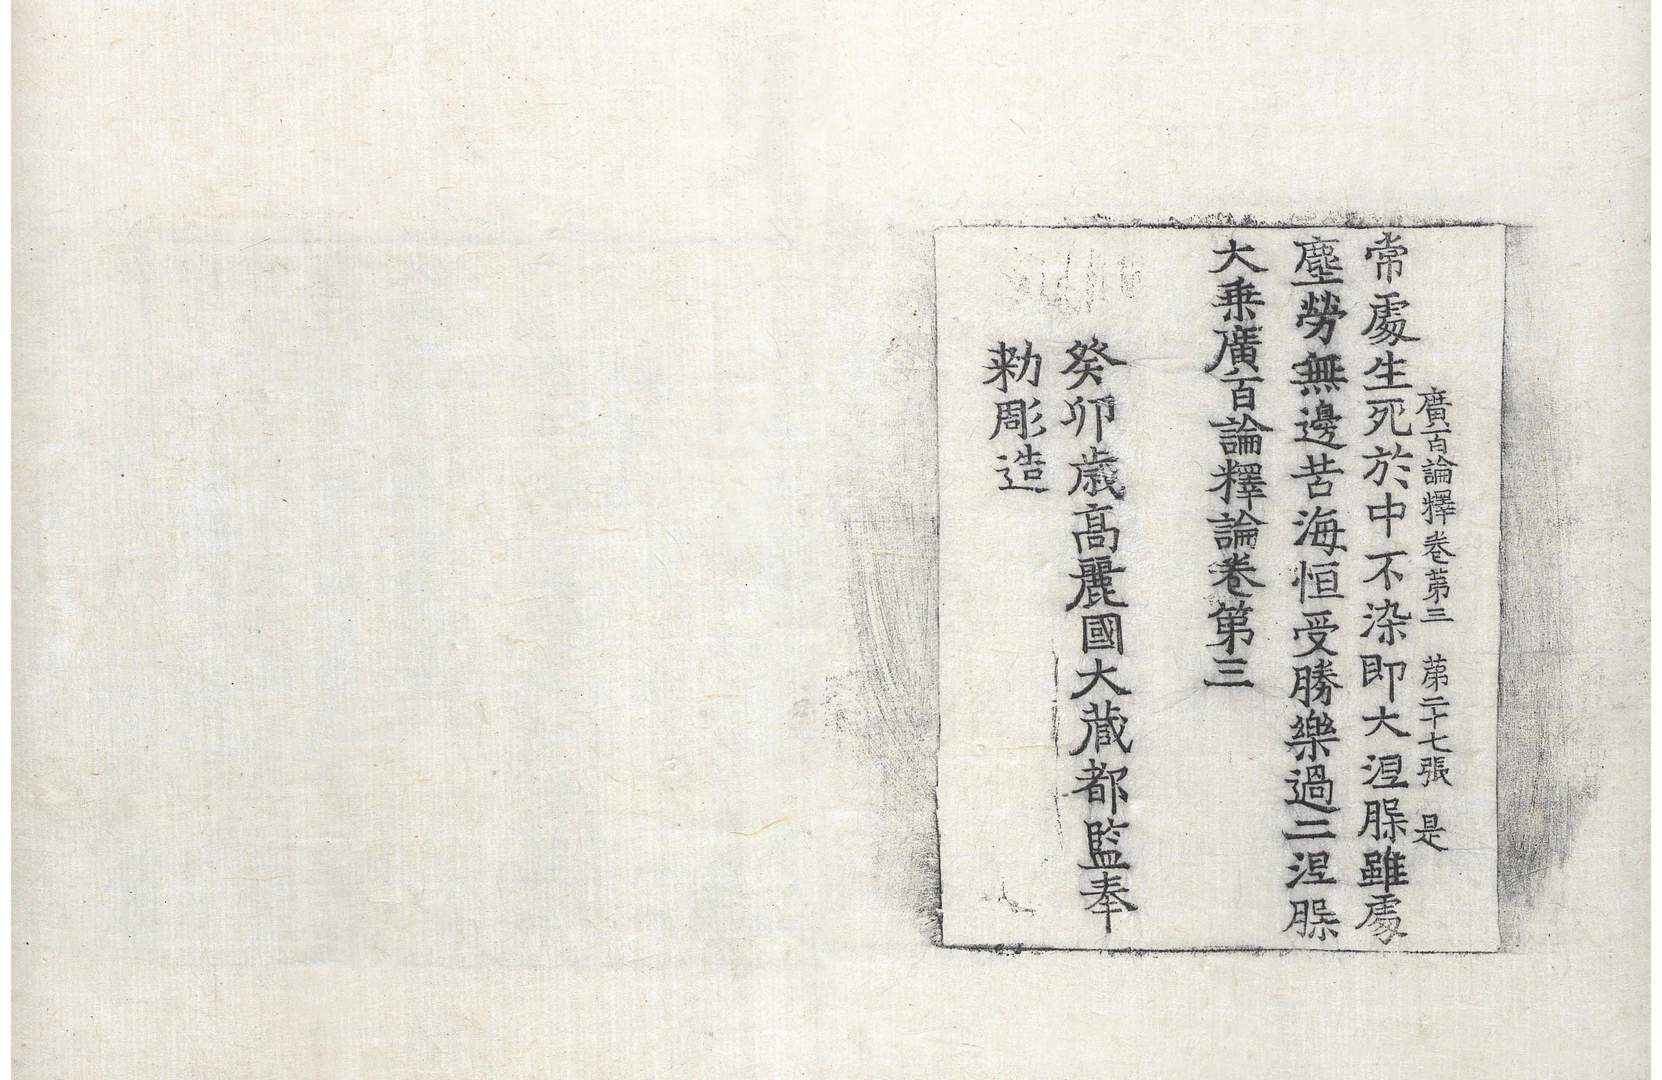 廣百論釋卷第三 第二十七張 是
常處生死於中不染即大涅脲雖處
塵勞無邊苦海恒受勝樂過二涅脲
大乗廣百論釋論卷第三
癸卯歳高麗國大藏都監奉
勑彫造